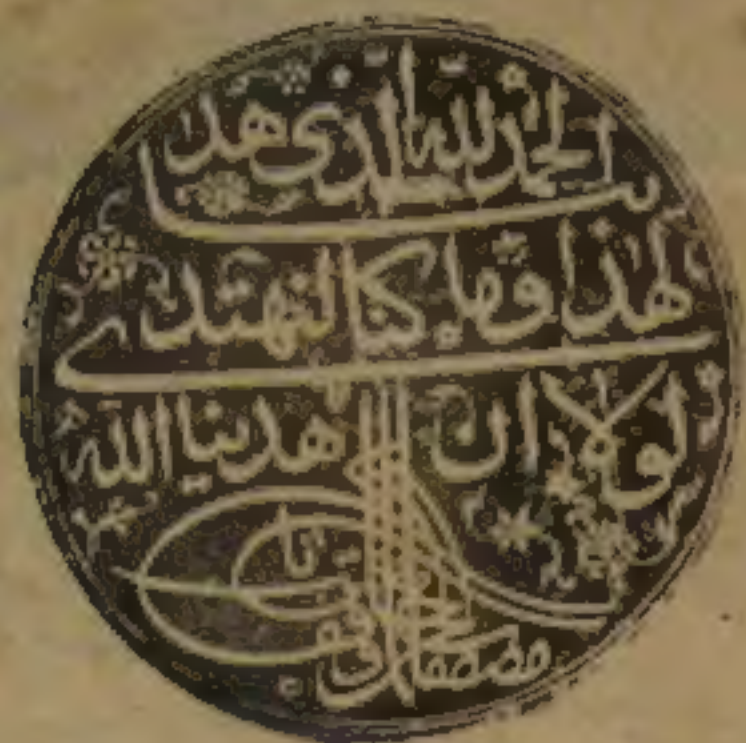 الحمد لله الذى هدانا
لهذا وما كنا لنهتدى
لولا ان هدينا الله